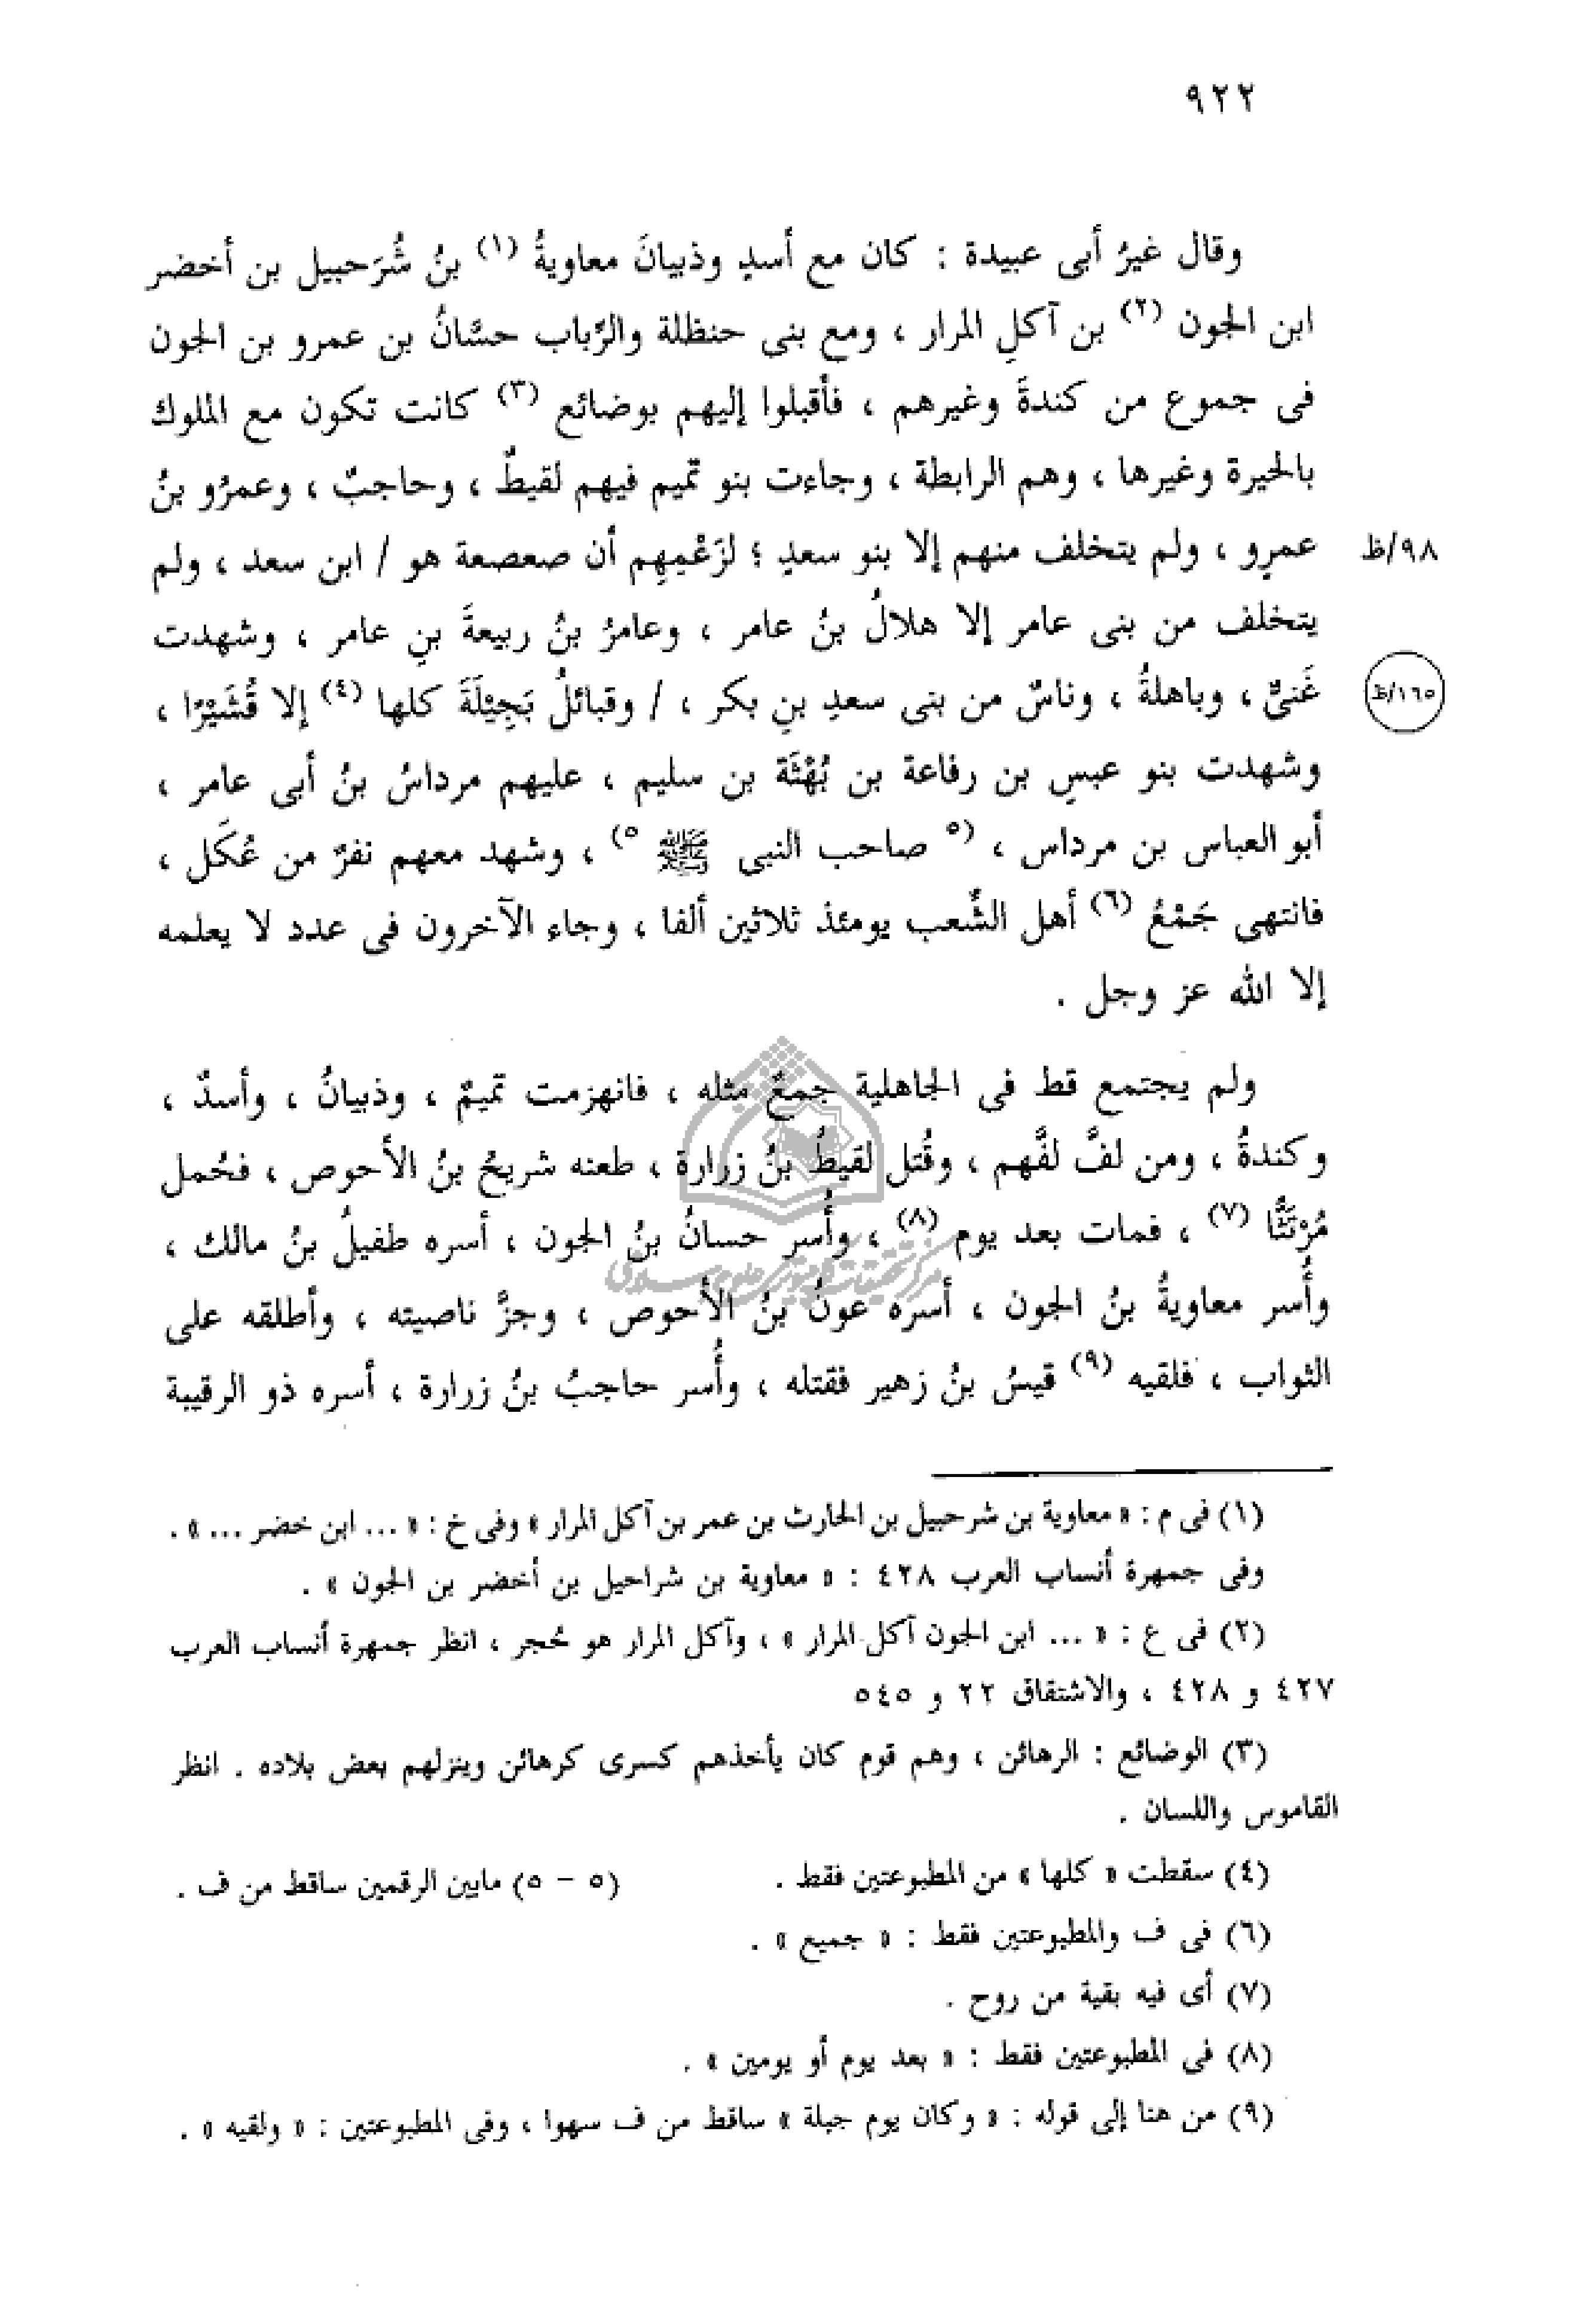 ٩٢٢
وقال غيرُ أبى عبيدة : كان مع أسدٍ وذبيانَ معاويةُ (١) بنُ شُرَحبيل بن أخضر
ابن الجون (٢) بن آكلِ المرار ، ومع بنى حنظلة والرِّباب حسَّانُ بن عمرو بن الجون
فى جموع من كندةَ وغيرهم ، فأقبلوا إليهم بوضائع (٣) كانت تكون مع الملوك
بالحيرة وغيرها ، وهم الرابطة ، وجاءت بنو تميم فيهم لقيطٌ ، وحاجبٌ ، وعمرُو بنُ
عمرٍو ، ولم يتخلف منهم إلا بنو سعدٍ ؛ لزَعْمِهِم أن صعصعة هو / ابن سعد ، ولم
٩٨/ظ
يتخلف من بنى عامر إلا هلالُ بنُ عامر ، وعامرُ بنُ ربيعةَ بنِ عامر ، وشهدت
غَنىٌّ ، وباهلةُ ، وناسٌ من بنى سعدِ بنِ بكر ، / وقبائلُ بَجِيْلَةَ كلها (٤) إلا قُشَيْرًا ،
١٦٥/ظ
وشهدت بنو عبسِ بن رفاعة بن بُهْثَة بن سليم ، عليهم مرداسُ بنُ أبى عامر ،
أبو العباس بن مرداس ، (٥ صاحب النبى ﷺ ٥) ، وشهد معهم نفرٌ من عُكَل ،
فانتهى جَمْعُ (٦) أهل الشِّعب يومئذ ثلاثين ألفا ، وجاء الآخرون فى عدد لا يعلمه
إلا الله عز وجل .
ولم يجتمع قط فى الجاهلية جمعٌ مثله ، فانهزمت تميمٌ ، وذبيانُ ، وأسدٌ ،
وكندةُ ، ومن لفَّ لفَّهم ، وقُتل لقيطُ بنُ زرارة ، طعنه شريحُ بنُ الأحوص ، فحُمل
مُرْتَثًّا (٧) ، فمات بعد يوم (٨) ، وأُسر حسانُ بنُ الجون ، أسره طفيلُ بنُ مالك ،
وأُسر معاويةُ بنُ الجون ، أسره عونُ بنُ الأحوص ، وجزَّ ناصيته ، وأطلقه على
الثواب ، فلقيه (٩) قيسُ بنُ زهير فقتله ، وأُسر حاجبُ بنُ زرارة ، أسره ذو الرقيبة
مركز تحقيقات كامپيوترى علوم اسلامى
(١) فى م : « معاوية بن شرحبيل بن الحارث بن عمر بن آكل المرار » وفى خ : « ... ابن خضر ... » .
وفى جمهرة أنساب العرب ٤٢٨ : « معاوية بن شراحيل بن أخضر بن الجون » .
(٢) فى ع : « ... ابن الجون آكل المرار » ، وآكل المرار هو حُجر ، انظر جمهرة أنساب العرب
٤٢٧ و ٤٢٨ ، والاشتقاق ٢٢ و ٥٤٥
(٣) الوضائع : الرهائن ، وهم قوم كان يأخذهم كسرى كرهائن وينزلهم بعض بلاده . انظر
القاموس واللسان .
(٤) سقطت « كلها » من المطبوعتين فقط . (٥ - ٥) مابين الرقمين ساقط من ف .
(٦) فى ف والمطبوعتين فقط : « جميع » .
(٧) أى فيه بقية من روح .
(٨) فى المطبوعتين فقط : « بعد يوم أو يومين » .
(٩) من هنا إلى قوله : « وكان يوم جبلة » ساقط من ف سهوا ، وفى المطبوعتين : « ولقيه » .